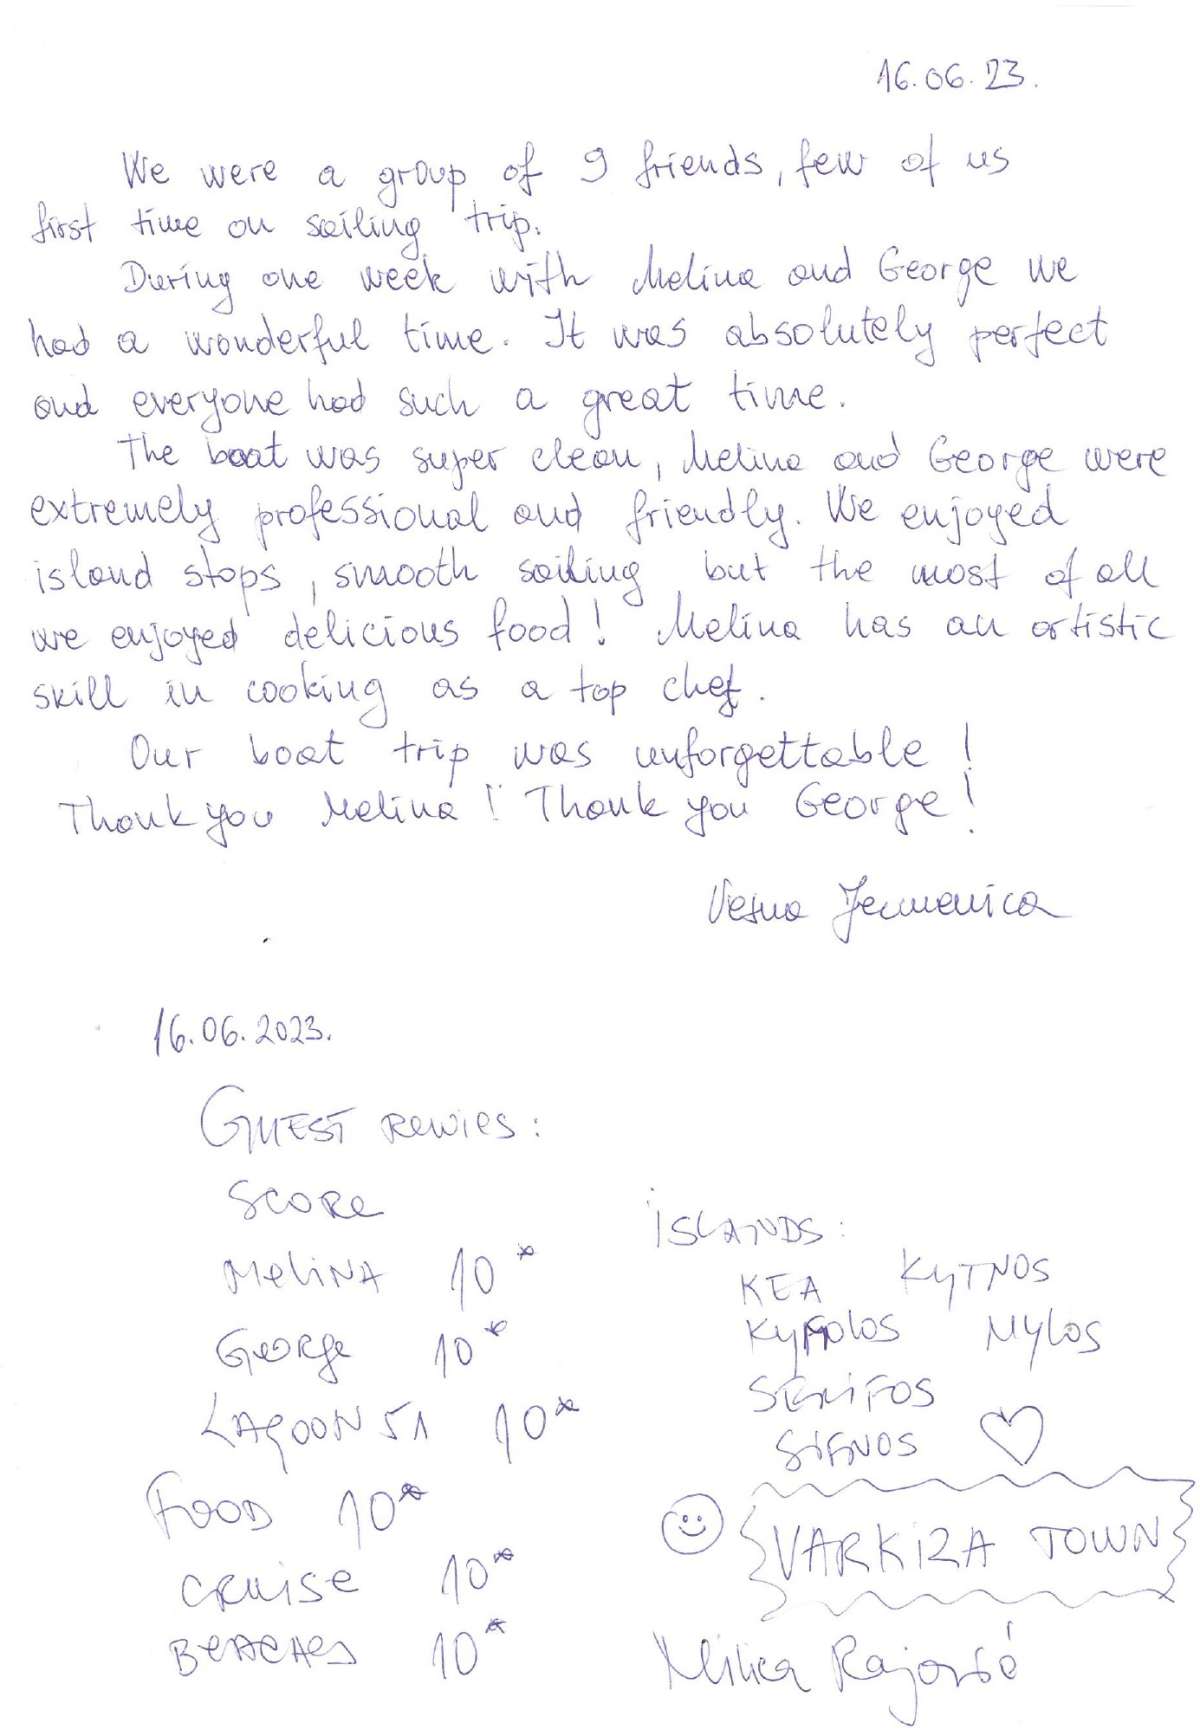 16.06.23.
We were a group of 9 friends, few of us
first time on sailing trip.
During one week with Melina and George we
had a wonderful time. It was absolutely perfect
and everyone had such a great time.
The boat was super clean, Melina and George were
extremely professional and friendly. We enjoyed
island stops, smooth sailing but the most of all
we enjoyed delicious food! Melina has an artistic
skill in cooking as a top chef.
Our boat trip was unforgettable!
Thank you Melina! Thank you George!
Vesna Jermenica
16.06.2023.
GUEST REWIES:
SCORE
MELINA 10*
GEORGE 10*
LAGOON 51 10*
FOOD 10*
CRUISE 10*
BEACHES 10*
ISLANDS:
KEA KYTNOS
MYLOS
SERIFOS
SIFNOS
VARKIZA TOWN
Milica